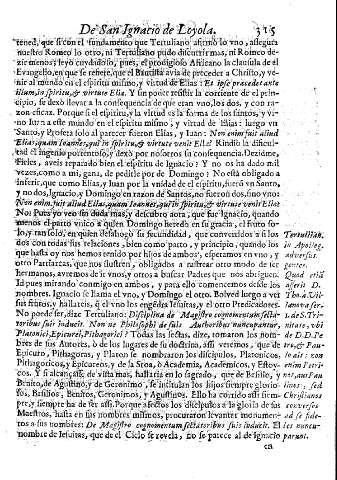 De San Ignacio de Loyola. 315
tened, que si con el fundamento que Tertuliano afirmò lo vno, assegura
nuestro Romeo lo otro, ni Tertuliano pudo discurrir mas, ni Romeo de-
zir menos; leyò cuydadoso, pues, el prodigioso Africano la clausula de el
Evangelio, en que se refiere, que el Bautista avia de preceder a Christo, y ve-
nir al mundo en el espiritu mismo, y virtud de Elias: Et ipse præcedet ante
illum, in spiritu, & virtute Eliæ. Y sin poder resistir la corriente de el prin-
cipio, se dexò llevar a la consequencia de que eran vno, los dos, y con ra-
zon eficaz. Porque si el espiritu, y la virtud es la forma de los santos, y vi-
no Iuan a este mundo en el espiritu mismo, y virtud de Elias: luego vn
Santo, y Profeta solo al parecer fueron Elias, y Iuan: Non enim fuit aliud
Elias, quam Ioannes, qui in spiritu, & virtute venit Eliæ? Rindiò la dificul-
tad el ingenio portentoso, y dexò por nosotros su consequencia. Dezidme,
Fieles, aveis reparado bien el espiritu de Ignacio? Y no os ha dado mil
vezes, como a mi, gana, de pedirle por de Domingo? No està obligado a
inferir, que como Elias, y Iuan por la vnidad de el espiritu, fueró vn Santo,
y no dos, Ignacio, y Domingo en razon de Santos, no fueron dos, sino vno?
Non enim fuit aliud Elias, quam Ioannes, qui in spiritu, & virtute venit Eliæ?
No: Pues yo veo sin duda mas, y descubro aora, que fue Ignacio, quando
menos el parto vnico a quien Domingo heredò en su gracia, el fruto so-
lo, y tan solo, en quien desahogò su fecundidad, que convertidos a si los
dos con todas sus relaciones, bien como parto, y principio, quando los
que hasta oy nos hemos tenido por hijos de ambos, esperamos en vno, y
otro Patriarcas, que nos ilustren, obligados a rastrear otro modo de ser
hermanos, avremos de ir vnos, y otros a buscar Padres que nos abriguen.
Id pues mirando conmigo en ambos, y para ello comencemos desde los
nombres. Ignacio se llama el vno, y Domingo el otro. Bolved luego a ver
sus hijos, y hallareis, q̃ el vno los engẽdra Iesuitas, y el otro Predicadores.
No puede ser, dize Tertuliano: Disciplina de Magistro cognomentum secta-
toribus suis inducit. Non ne Philosophi de suis Authoribus nuncupantur,
Platonici, Epicurei, Pithagorici? Todas las sectas, dize, tomaron los nom-
bres de sus Autores, ò de los lugares de su doctrina, assi veremos, que de
Epicuro, Pithagoras, y Platon se nombraron los discipulos, Platonicos,
Pithagoricos, y Epicureos, y de la Stoa, ò Academia, Academicos, y Estoy-
cos. Y si alcançasse de vista mas, hallaria en lo sagrado, que de Basilio, y
Benito, de Agustino, y de Geronimo, se intitulan los hijos siempre glorio-
sos, Basilios, Benitos, Geronimos, y Agustinos. Ello ha corrido assi siem-
pre, y siempre ha de ser assi. Porque afectos los discipulos a la gloria de sus
Maestros, hasta en sus nombres mismos, procuraron levantar monumen-
to a sus nombres: De Magistro cognomentum sectatoribus suis inducit. El re-
nombre de Iesuitas, que de el Cielo se revela, no se parece al de Ignacio
en
Tertullian.
in Apolog.
adversus
gentes.